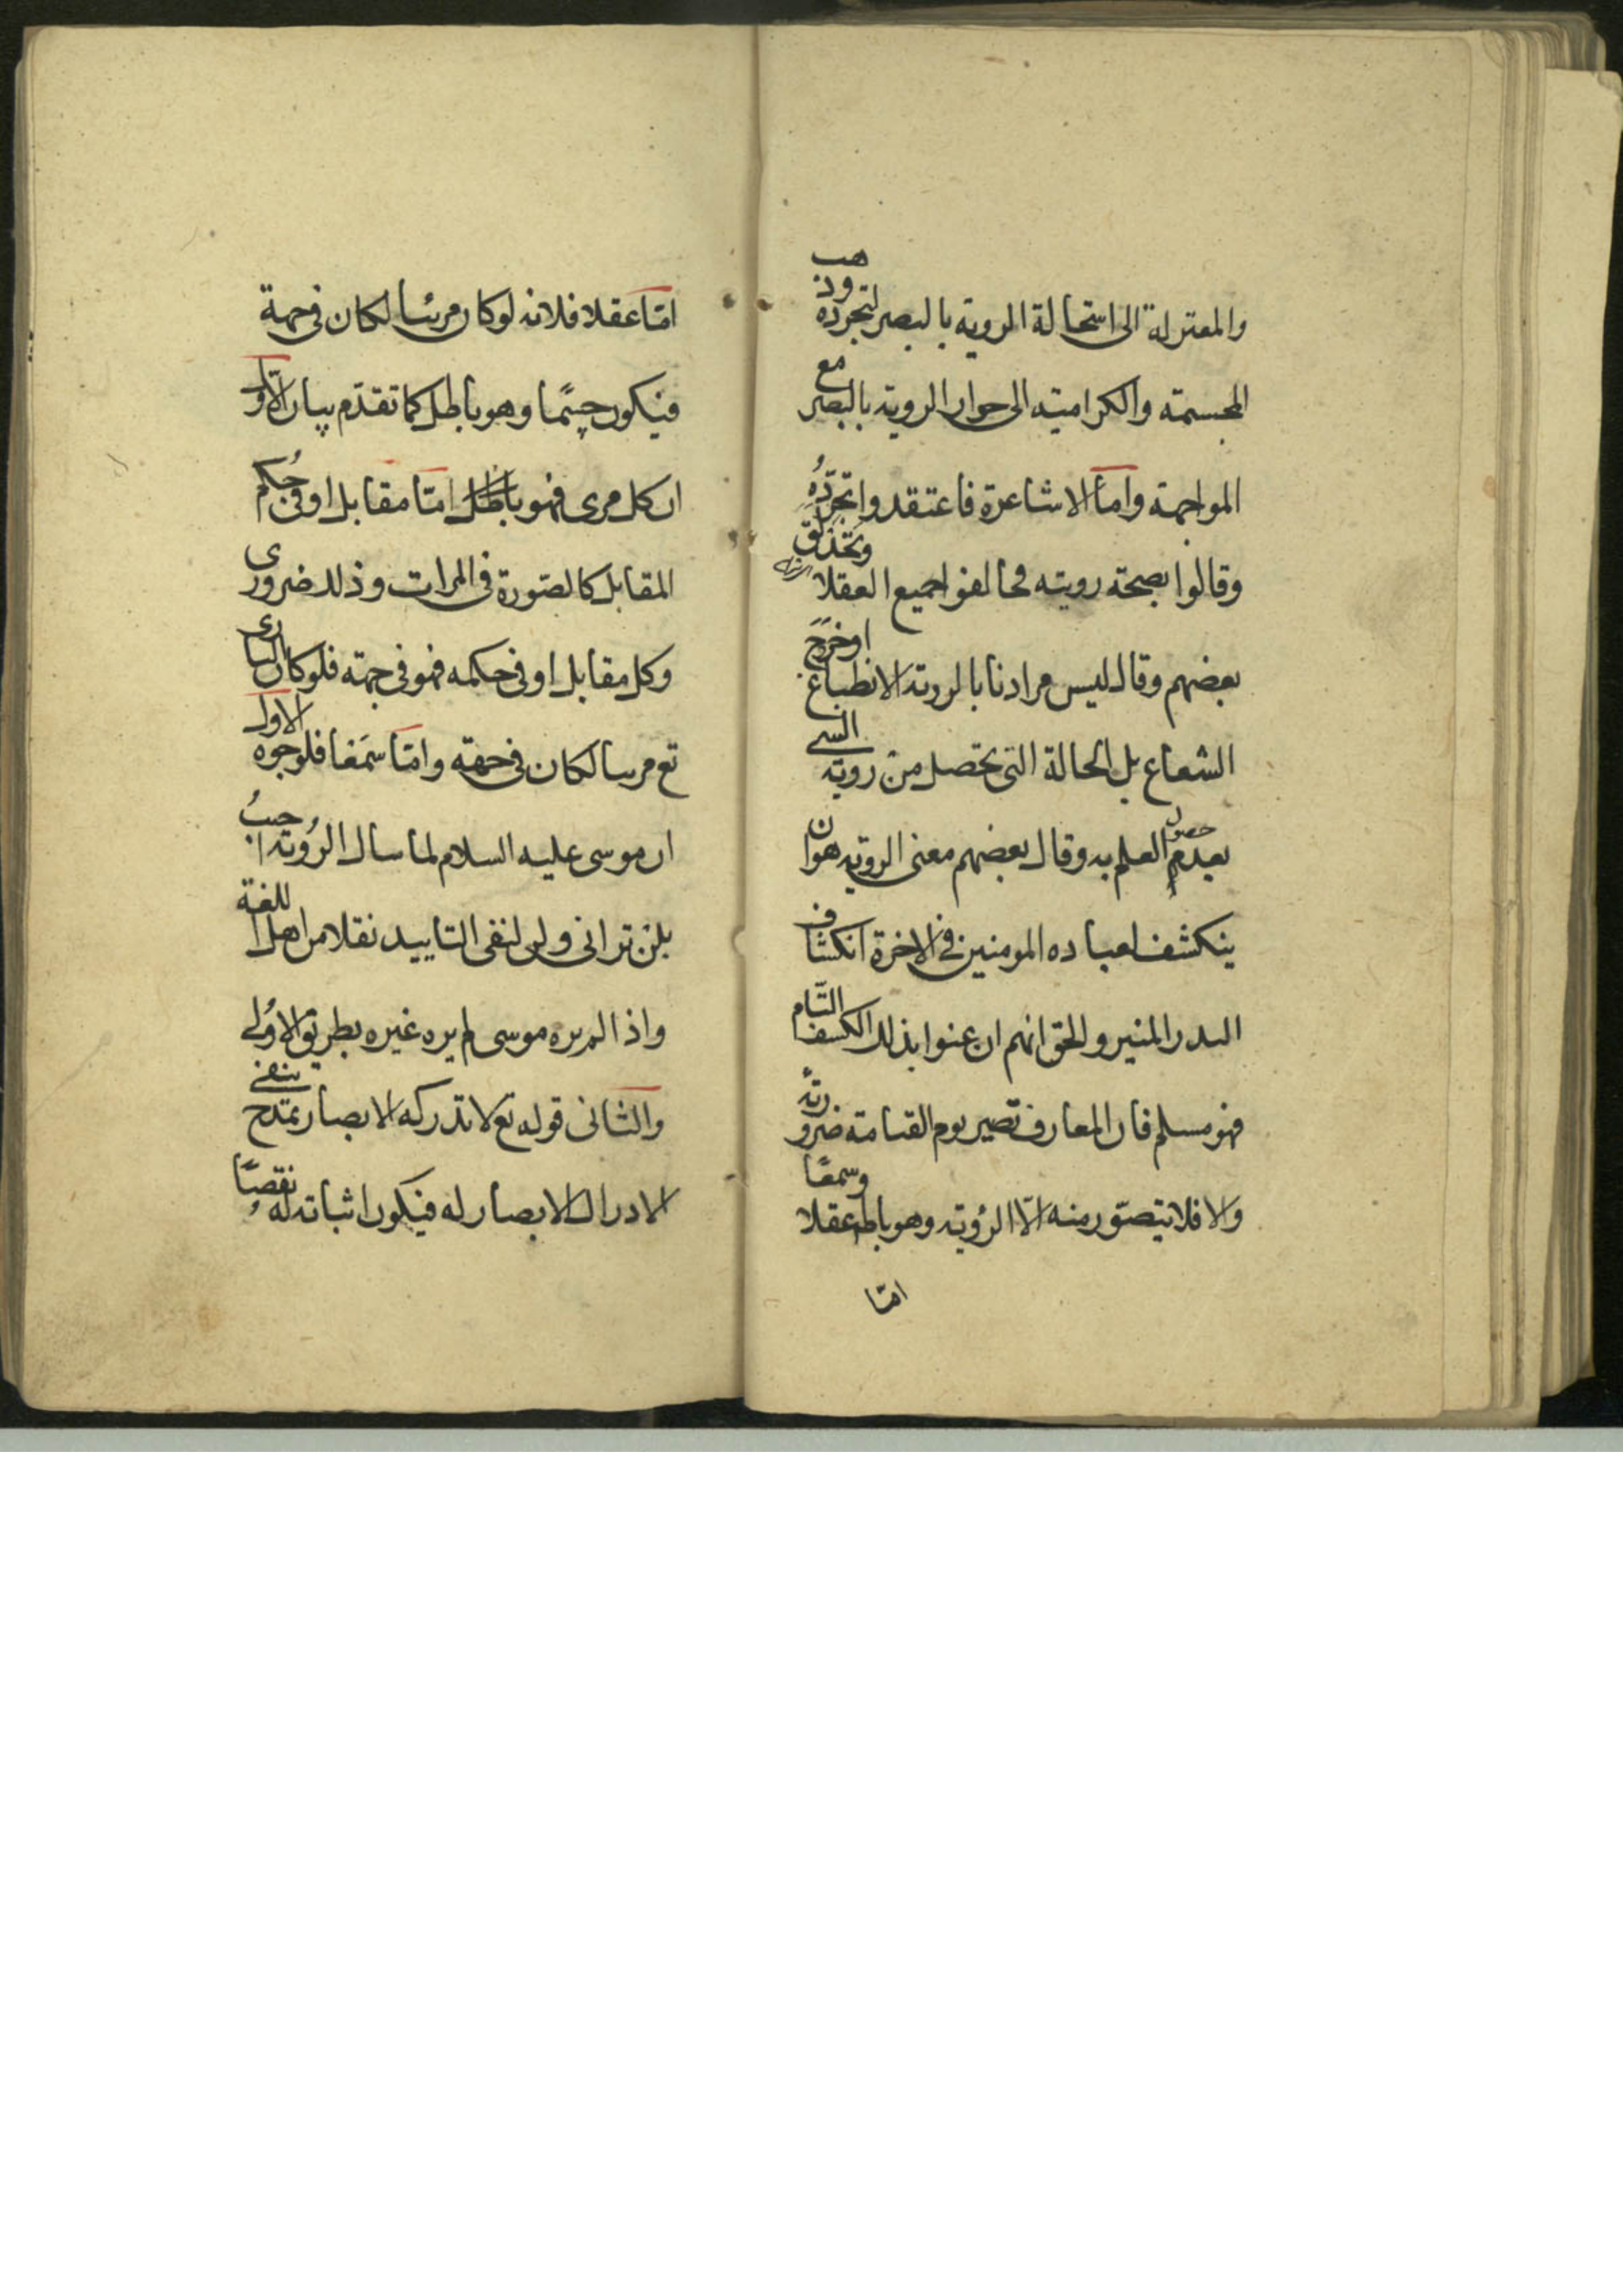 والمعتزلة الى استحالة الروية بالبصر لتجرده وذهب
المجسمة والكرامية الى جواز الروية بالبصر مع
المواجهة واما الاشاعرة فاعتقدوا تجرّدُه
وقالوا بصحة رويته مخالفوا جميع العقلا وتحذلق
بعضهم وقال ليس مرادنا بالروية الانطباع اوخروج
الشعاع بل الحالة التى تحصل من روية الشى
بعد حصول العلم به وقال بعضهم معنى الروية هو ان
ينكشف لعباده المومنين فى الاخرة انكشاف
البدر المنير والحق انهم ان عنوا بذلك الكشف التّام
فهو مسلم فان المعارف تصير يوم القيامة ضرورية
والا فلا يتصوّر منه الّا الرؤية وهو باطل عقلا وسمعًا
امّا
امّا عقلا فلانه لوكان مرئيا لكان فى جهة
فيكون جسمًا وهو باطل كما تقدّم بيان الاول
ان كل مرى فهو باطل امّا مقابل او فى حُكم
المقابل كالصّورة فى المرات وذلك ضرورى
وكل مقابل او فى حكمه فهو فى جهة فلو كان البارى
تع مرييا لكان فى جهة وامّا سمعًا فلوجوه الاول
ان موسى عليه السلام لما سال الرُوية اجيبُ
بلن ترانى ولن لنفى التاييد نقلا من اهل اللغة
واذا لم يره موسى لم يره غيره بطريق الاوُلى
والثانى قوله تع لا تدركه الابصار تمدّح بنفى
الادراك الابصار له فيكون اثباته له نقصًا